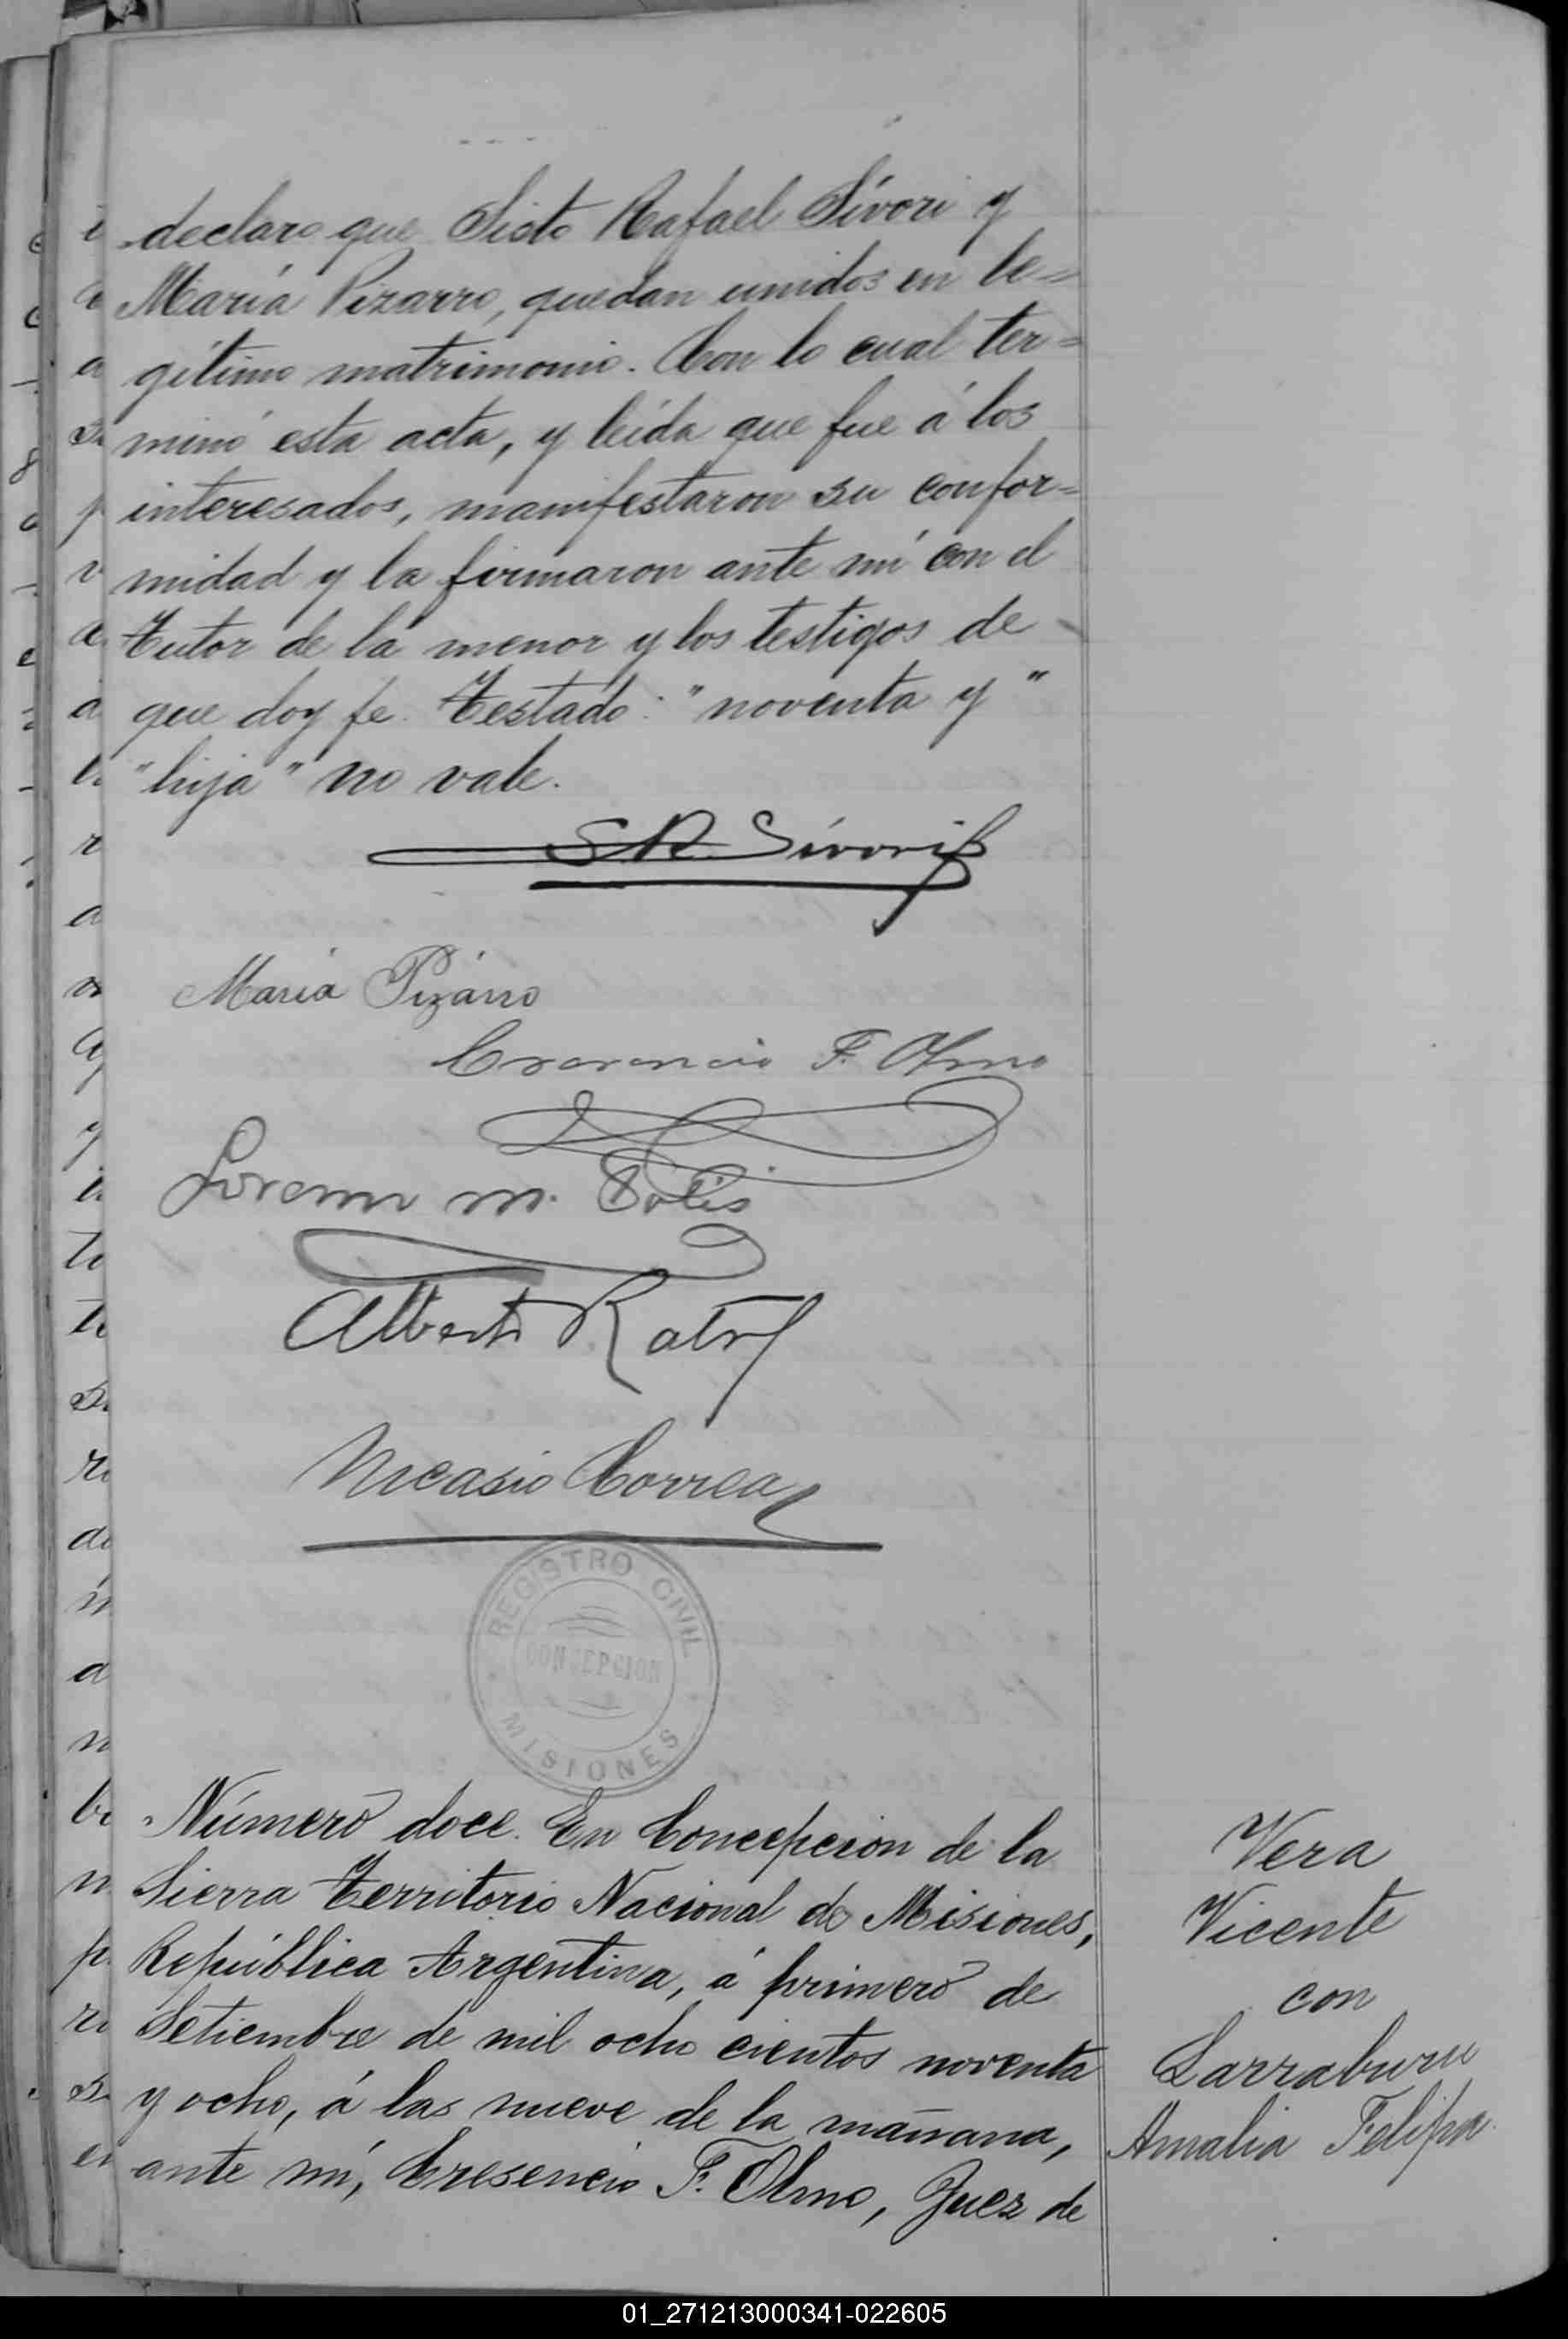 declaro que Sisto Rafael Sívori y
María Pizarro, quedan unidos en le=
gítimo matrimonio. Con lo cual ter=
minó esta acta, y leída que fue á los
interesados, manifestaron su confor=
midad y la firmaron ante mí con el
Tutor de la menor y los testigos de
que doy fe. Testado: "noventa y"
"hija" no vale.
S R. Sívori
María Pizárro
F. Olmo
Lorenzo M. Solis
Alberto
Nicasio Correa
REGISTRO CIVIL
CONCEPCION
MISIONES
Número doce. En Concepcion de la
Sierra Territorio Nacional de Misiones,
República Argentina, á primero de
Setiembre de mil ocho cientos noventa
y ocho, á las nueve de la mañana,
ante mí, Cresencio F. Olmo, Juez de
Vera
Vicente
con
Larraburu
Amalia Felipa
01_271213000341-022605